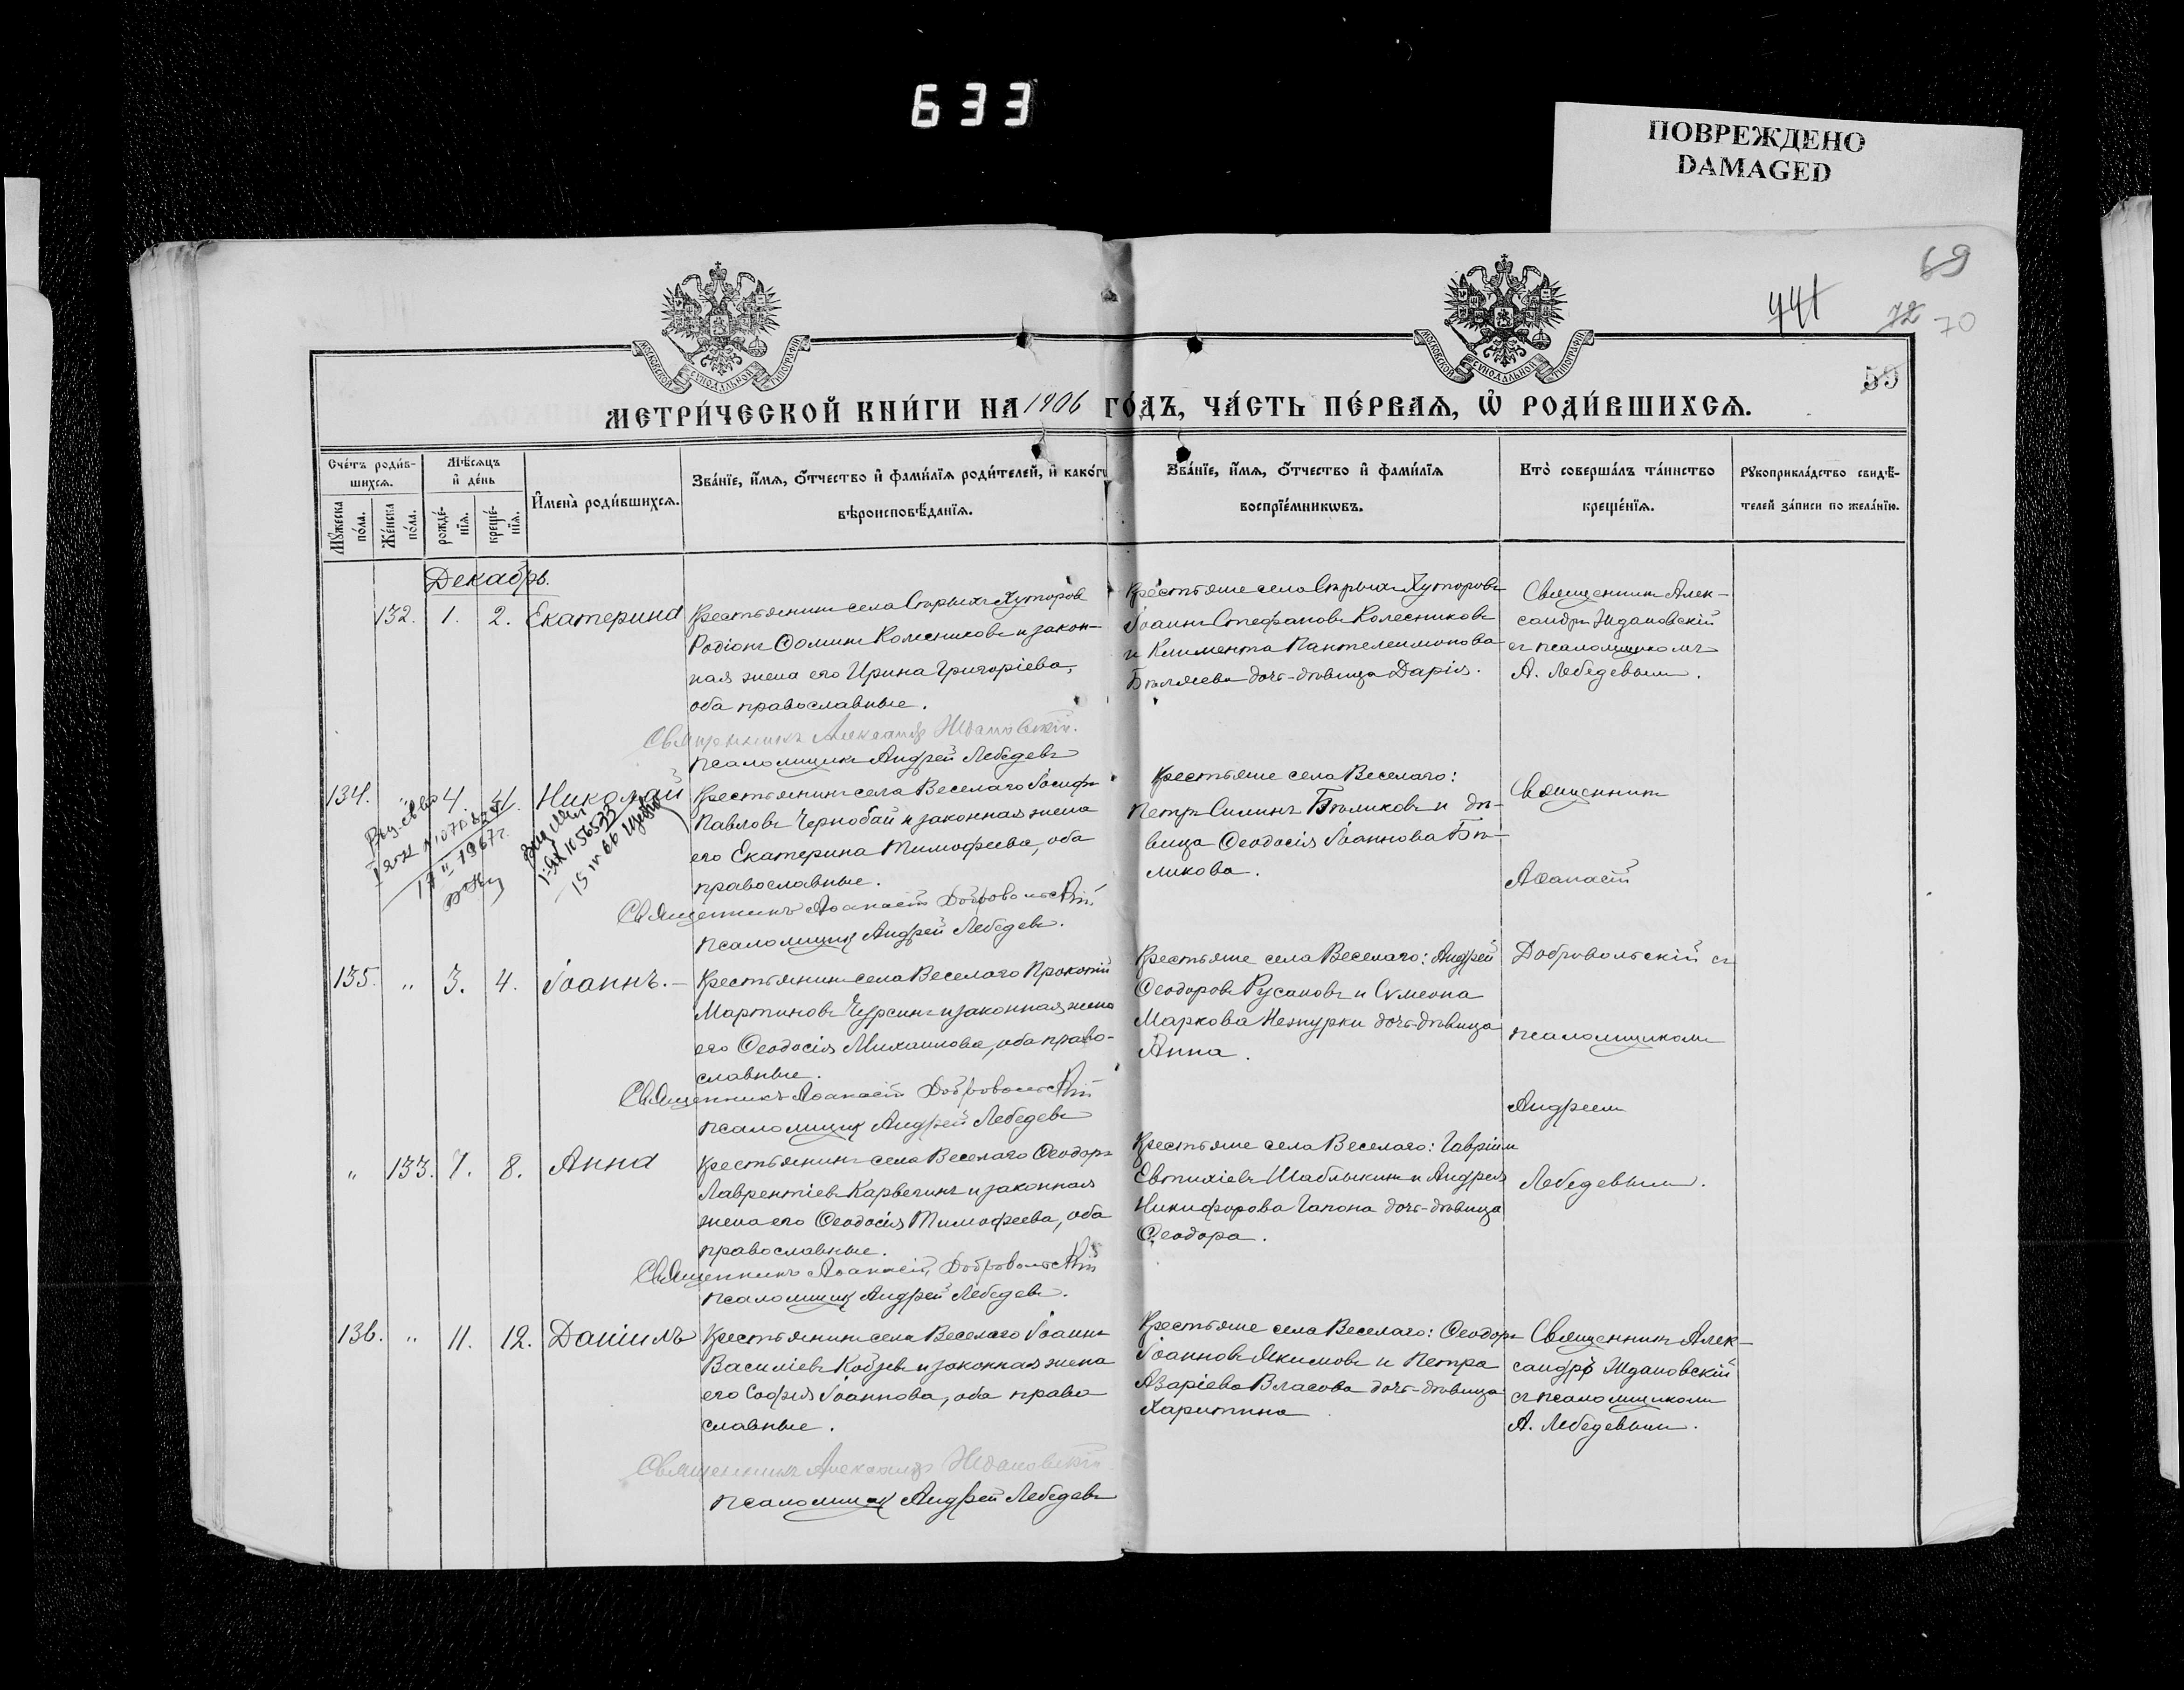 633
ПОВРЕЖДЕНО
DAMAGED
69
441
72 70
59
МОСКОВСКОЙ СУНОДАЛЬНОЙ ТИПОГРАФІИ
МОСКОВСКОЙ СУНОДАЛЬНОЙ ТИПОГРАФІИ
МЕТРИ́ЧЕСКОЙ КНИ́ГИ НА 1906 ГО́ДЪ, ЧА́СТЬ ПЕ́РВАѦ, Ѡ҆ РОДИ́ВШИХСѦ.
Сче́тъ роди́в-
шихсѧ.
Мѣ́сѧцъ
и҆ де́нь
Мꙋ́жеска по́ла.
Же́нска по́ла.
рожде́-
нїѧ.
креще́-
нїѧ.
И҆мена̀ роди́вшихсѧ.
Зва́нїе, и҆́мѧ, ѻ҆́тчество и҆ фами́лїѧ роди́телей, и҆ како́гѡ
вѣроисповѣ́данїѧ.
Зва́нїе, и҆́мѧ, ѻ҆́тчество и҆ фами́лїѧ
воспрїе́мникѡвъ.
Кто̀ соверша́лъ та́инство
креще́нїѧ.
Рꙋкоприкла́дство свидѣ́-
телей за́писи по жела́нїю.
Декабрь.
132. 1. 2. Екатерина
Крестьянинъ села Старыхъ Хуторовъ
Родіонъ Ѳоминъ Колесниковъ и закон-
ная жена его Ирина Григоріева,
оба православные.
Священникъ Александръ Ждановскій.
псаломщикъ Андрей Лебедевъ
Крестьяне села Старыхъ Хуторовъ
Іоаннъ Стефановъ Колесниковъ
и Климента Пантелеимонова
Бѣляева дочь-дѣвица Дарія.
Священникъ Алек-
сандръ Ждановскій
съ псаломщикомъ
А. Лебедевымъ.
134. " 4. 4. Николай
Крестьянинъ села Веселаго Іосифъ
Павловъ Чернобай и законная жена
его Екатерина Тимофеева, оба
православные.
Священникъ Аѳанасій Добровольскій
псаломщикъ Андрей Лебедевъ.
Выд. св-во
13 II-1967г.
15 IV 66
Крестьяне села Веселаго:
Петръ Силинъ Бѣликовъ и дѣ-
вица Ѳеодосія Іоаннова Бѣ-
ликова.
Священникъ
Аѳанасій
135. " 3. 4. Іоаннъ.
Крестьянинъ села Веселаго Прокопій
Мартиновъ Чурсинъ и законная жена
его Ѳеодосія Михаилова, оба право-
славные.
Священникъ Аѳанасій Добровольскій
псаломщикъ Андрей Лебедевъ
Крестьяне села Веселаго: Андрей
Ѳеодоровъ Русановъ и Сѵмеона
Маркова Нежурки дочь-дѣвица
Анна.
Добровольскій съ
псаломщикомъ
Андреемъ
" 133. 7. 8. Анна
Крестьянинъ села Веселаго Ѳеодоръ
Лаврентіевъ Карвегинъ и законная
жена его Ѳеодосія Тимофеева, оба
православные.
Священникъ Аѳанасій Добровольскій
псаломщикъ Андрей Лебедевъ.
Крестьяне села Веселаго: Гавріилъ
Евтихіевъ Шаблыкинъ и Андрея
Никифорова Гапона дочь-дѣвица
Ѳеодора.
Лебедевымъ.
136. " 11. 12. Даніилъ
Крестьянинъ села Веселаго Іоаннъ
Василіевъ Кобзевъ и законная жена
его Софія Іоаннова, оба право
славные.
Священникъ Александръ Ждановскій
псаломщикъ Андрей Лебедевъ
Крестьяне села Веселаго: Ѳеодоръ
Іоанновъ Якимовъ и Петра
Азаріева Власова дочь-дѣвица
Харитина
Священникъ Алек-
сандръ Ждановскій
съ псаломщикомъ
А. Лебедевымъ.